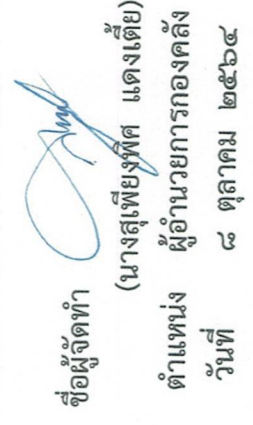 ชื่อผู้จัดทำ
(นางสุเพียงพิศ แดงเดี้ย)
ตำแหน่ง ผู้อำนวยการกองคลัง
วันที่ ๘ ตุลาคม ๒๕๖๔